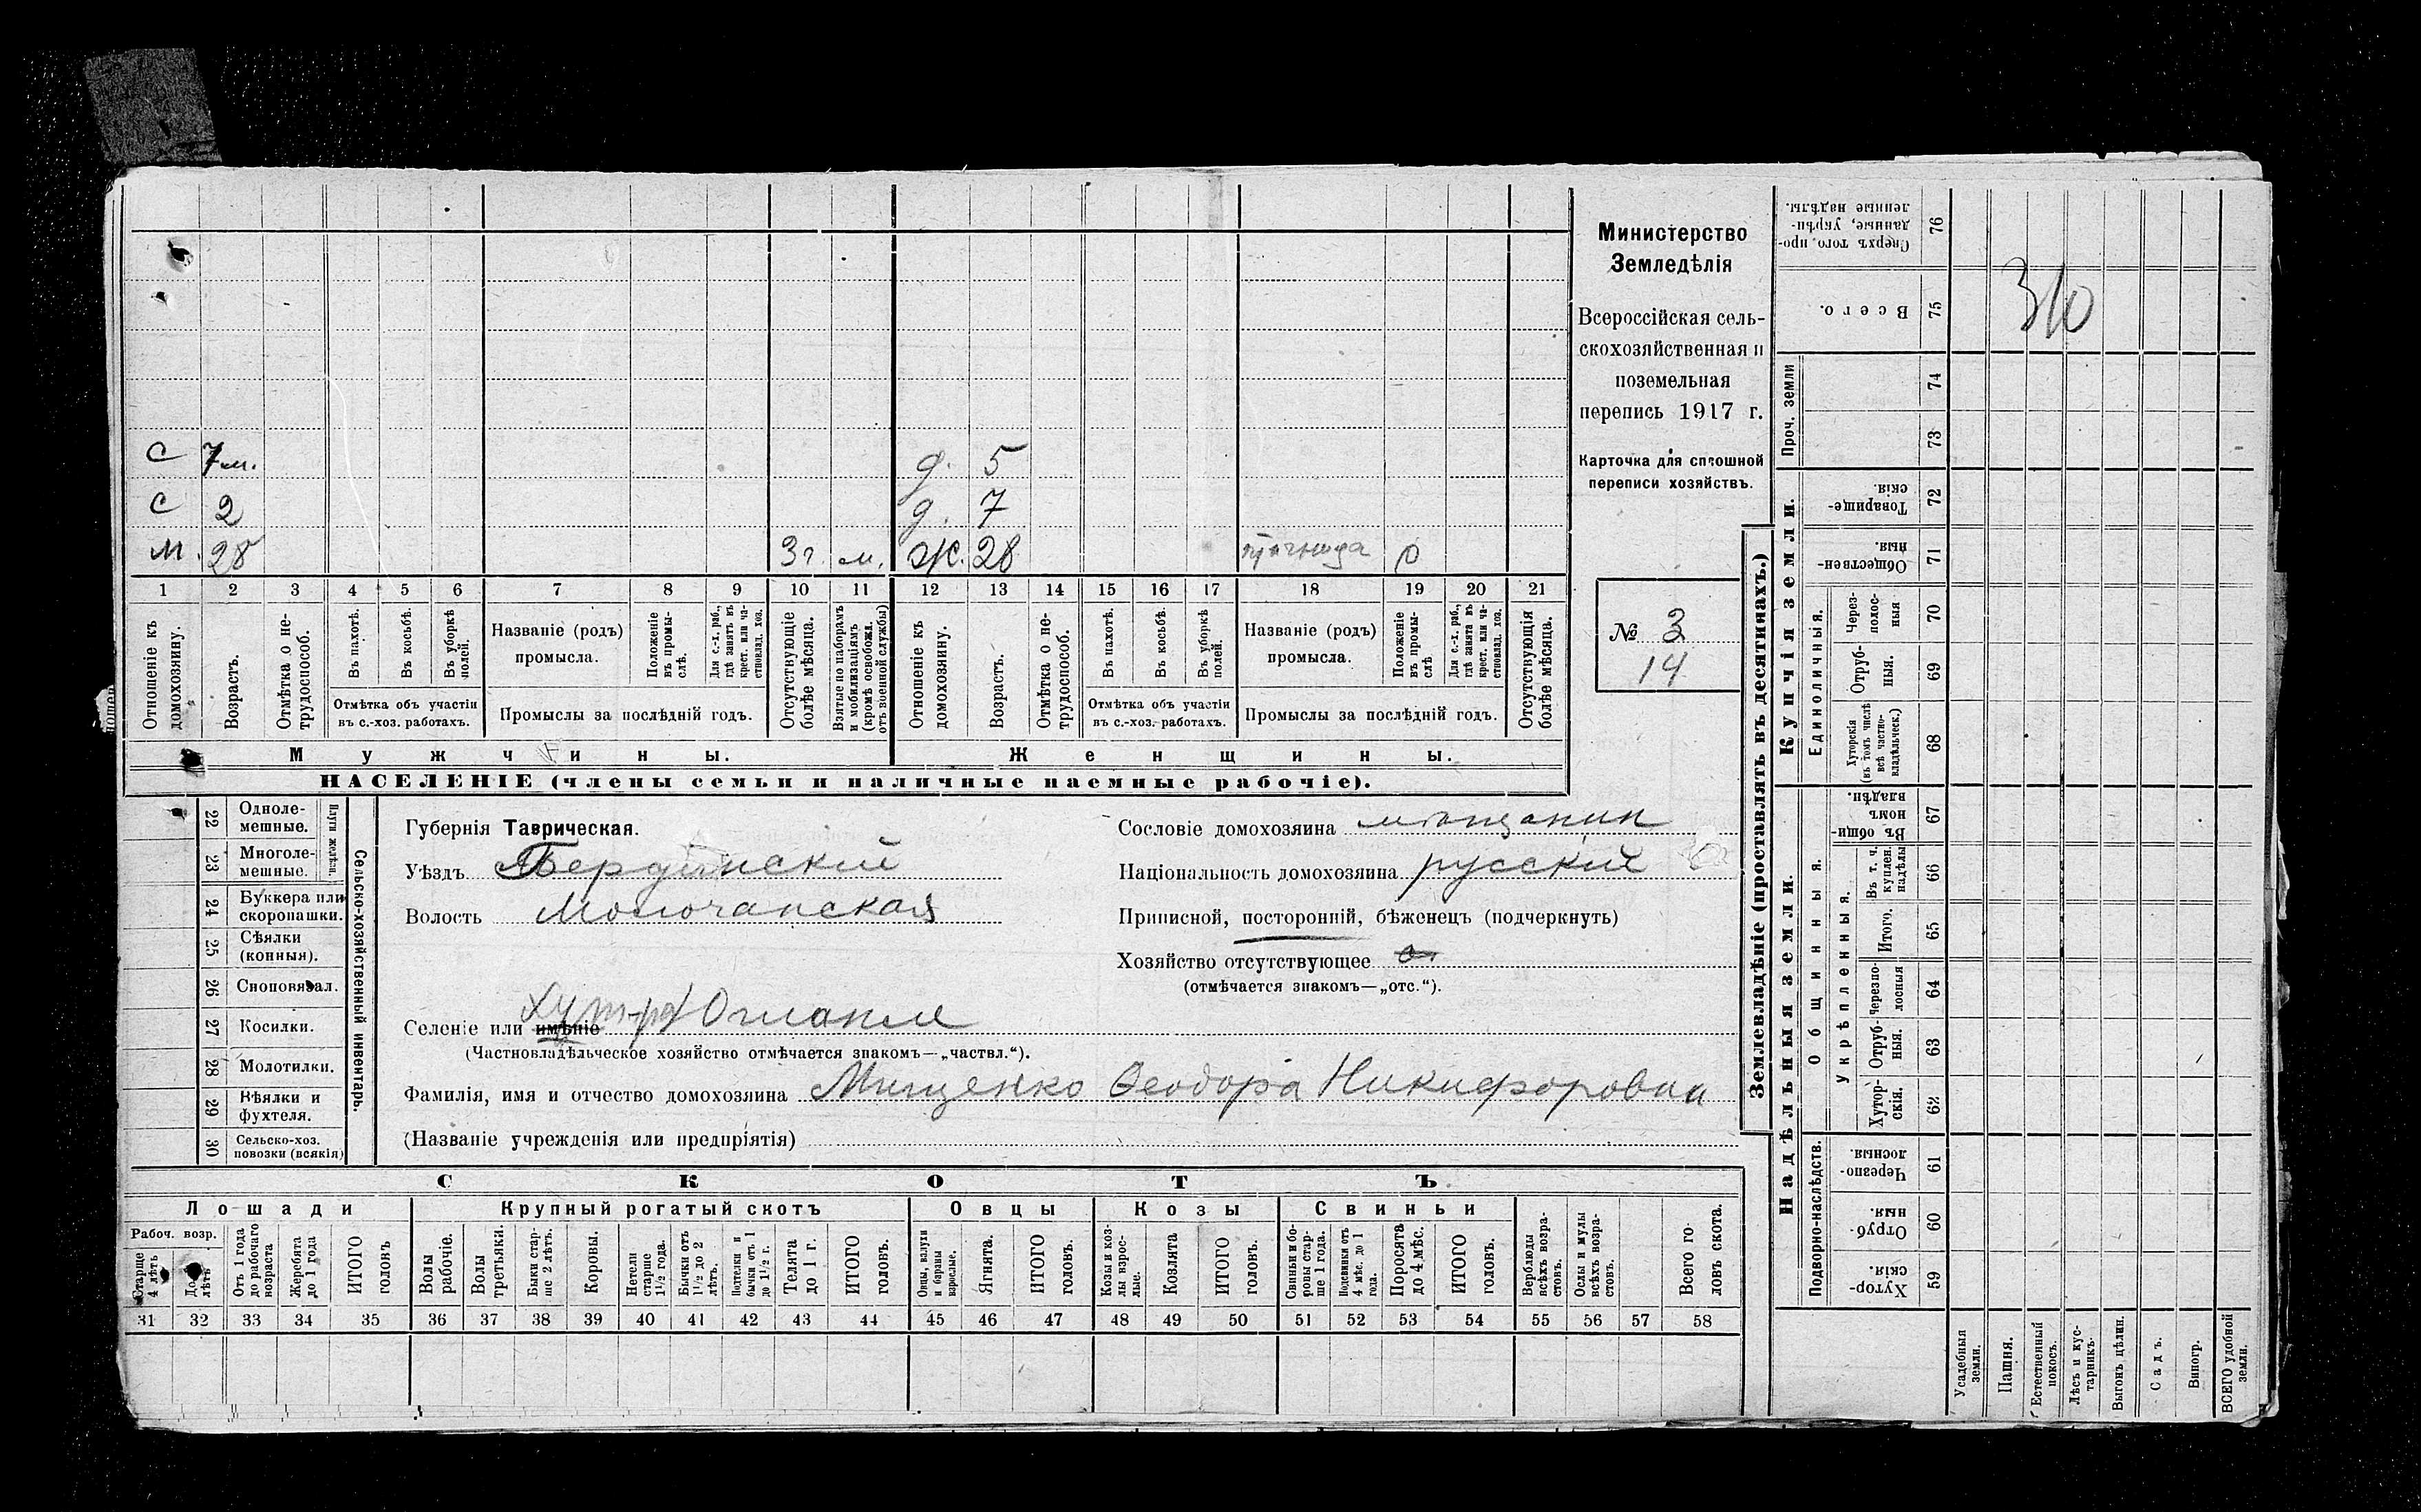 С 7 м. д. 5
С 2 д. 7
М. 28 3 г. м. Ж. 28 р
1 2 3 4 5 6 7 8 9 10 11 12 13 14 15 16 17 18 19 20 21
Отношеніе къ домохозяину.
Возрастъ.
Отмѣтка о нетрудоспособ.
Въ пахотѣ.
Въ косьбѣ.
Въ уборкѣ полей.
Отмѣтка объ участіи
въ с.-хоз. работахъ.
Названіе (родъ)
промысла.
Положеніе въ промыслѣ.
Для с.-х. раб., гдѣ занятъ въ крест. или частновлад. хоз.
Промыслы за послѣдній годъ.
Отсутствующіе болѣе мѣсяца.
Взятые по наборамъ и мобилизаціямъ (кромѣ освобожд. отъ военной службы)
Отношеніе къ домохозяину.
Возрастъ.
Отмѣтка о нетрудоспособ.
Въ пахотѣ.
Въ косьбѣ.
Въ уборкѣ полей.
Отмѣтка объ участіи
въ с.-хоз. работахъ.
Названіе (родъ)
промысла.
Положеніе въ промыслѣ
Для с.-х. раб., гдѣ занята въ крест. или частновлад. хоз.
Промыслы за послѣдній годъ.
Отсутствующія болѣе мѣсяца.
Мужчины. Женщины.
НАСЕЛЕНІЕ (члены семьи и наличные наемные рабочіе).
Министерство
Земледѣлія
Всероссійская сель-
скохозяйственная и
поземельная
перепись 1917 г.
Карточка для сплошной
переписи хозяйствъ.
№ 3
14
22 Одноле-
мешные.
23 Многоле-
мешные.
Плуги желѣзн.
24 Буккера или
скоропашки.
25 Сѣялки
(конныя).
26 Сноповязал.
27 Косилки.
28 Молотилки.
29 Вѣялки и
фухтеля.
30 Сельско-хоз.
повозки (всякія)
Сельско-хозяйственный инвентарь.
Губернія Таврическая.
Уѣздъ Бердянскій
Волость Молочанская
Селеніе или имѣніе Хуторъ
(Частновладѣльческое хозяйство отмѣчается знакомъ—„частвл.“).
Фамилія, имя и отчество домохозяина Мищенко Ѳеодора Никифоровна
(Названіе учрежденія или предпріятія)
Сословіе домохозяина мѣщанин
Національность домохозяина русскій
Приписной, посторонній, бѣженецъ (подчеркнуть)
Хозяйство отсутствующее
(отмѣчается знакомъ—„отс.“).
СКОТЪ
Лошади Крупный рогатый скотъ Овцы Козы Свиньи
Рабоч. возр.
Старше 4 лѣтъ
До 4 лѣтъ
Отъ 1 года до рабочаго возраста
Жеребята до 1 года
ИТОГО головъ
Волы рабочіе.
Волы третьяки.
Быки старше 2 лѣтъ.
Коровы.
Нетели старше 1½ года.
Бычки отъ 1½ до 2 лѣтъ.
Подтелки и бычки отъ 1 до 1½ г.
Телята до 1 г.
ИТОГО головъ.
Овцы, валухи и бараны взрослые.
Ягнята.
ИТОГО головъ.
Козы и козлы взрослые.
Козлята
ИТОГО головъ.
Свиньи и боровы старше 1 года.
Подсвинки отъ 4 мѣс. до 1 года.
Поросята до 4 мѣс.
ИТОГО головъ.
Верблюды всѣхъ возрастовъ.
Ослы и мулы всѣхъ возрастовъ.
Всего головъ скота.
31 32 33 34 35 36 37 38 39 40 41 42 43 44 45 46 47 48 49 50 51 52 53 54 55 56 57 58
Землевладѣніе (проставлять въ десятинахъ.)
Надѣльныя земли. Купчія земли. Проч. земли
Подворно-наслѣдств.
Общинныя.
Укрѣпленныя.
Единоличныя.
Хуторскія. 59
Отрубныя. 60
Черезполосныя. 61
Хуторскія. 62
Отрубныя. 63
Черезполосныя 64
Итого. 65
Въ т. ч. куплен. надѣлы 66
Въ общинномъ владѣн. 67
Хуторскія (въ томъ числѣ всѣ частновладѣльческ.) 68
Отрубныя. 69
Черезполосныя 70
Общественныя. 71
Товарищескія. 72
73
74
Всего. 75
Сверхъ того, проданные, укрѣпленные надѣлы. 76
310
Усадебныя земли.
Пашня.
Естественный покосъ.
Лѣсъ и кустарникъ.
Выгонъ цѣлин.
Садъ.
Виногр.
ВСЕГО удобной земли.